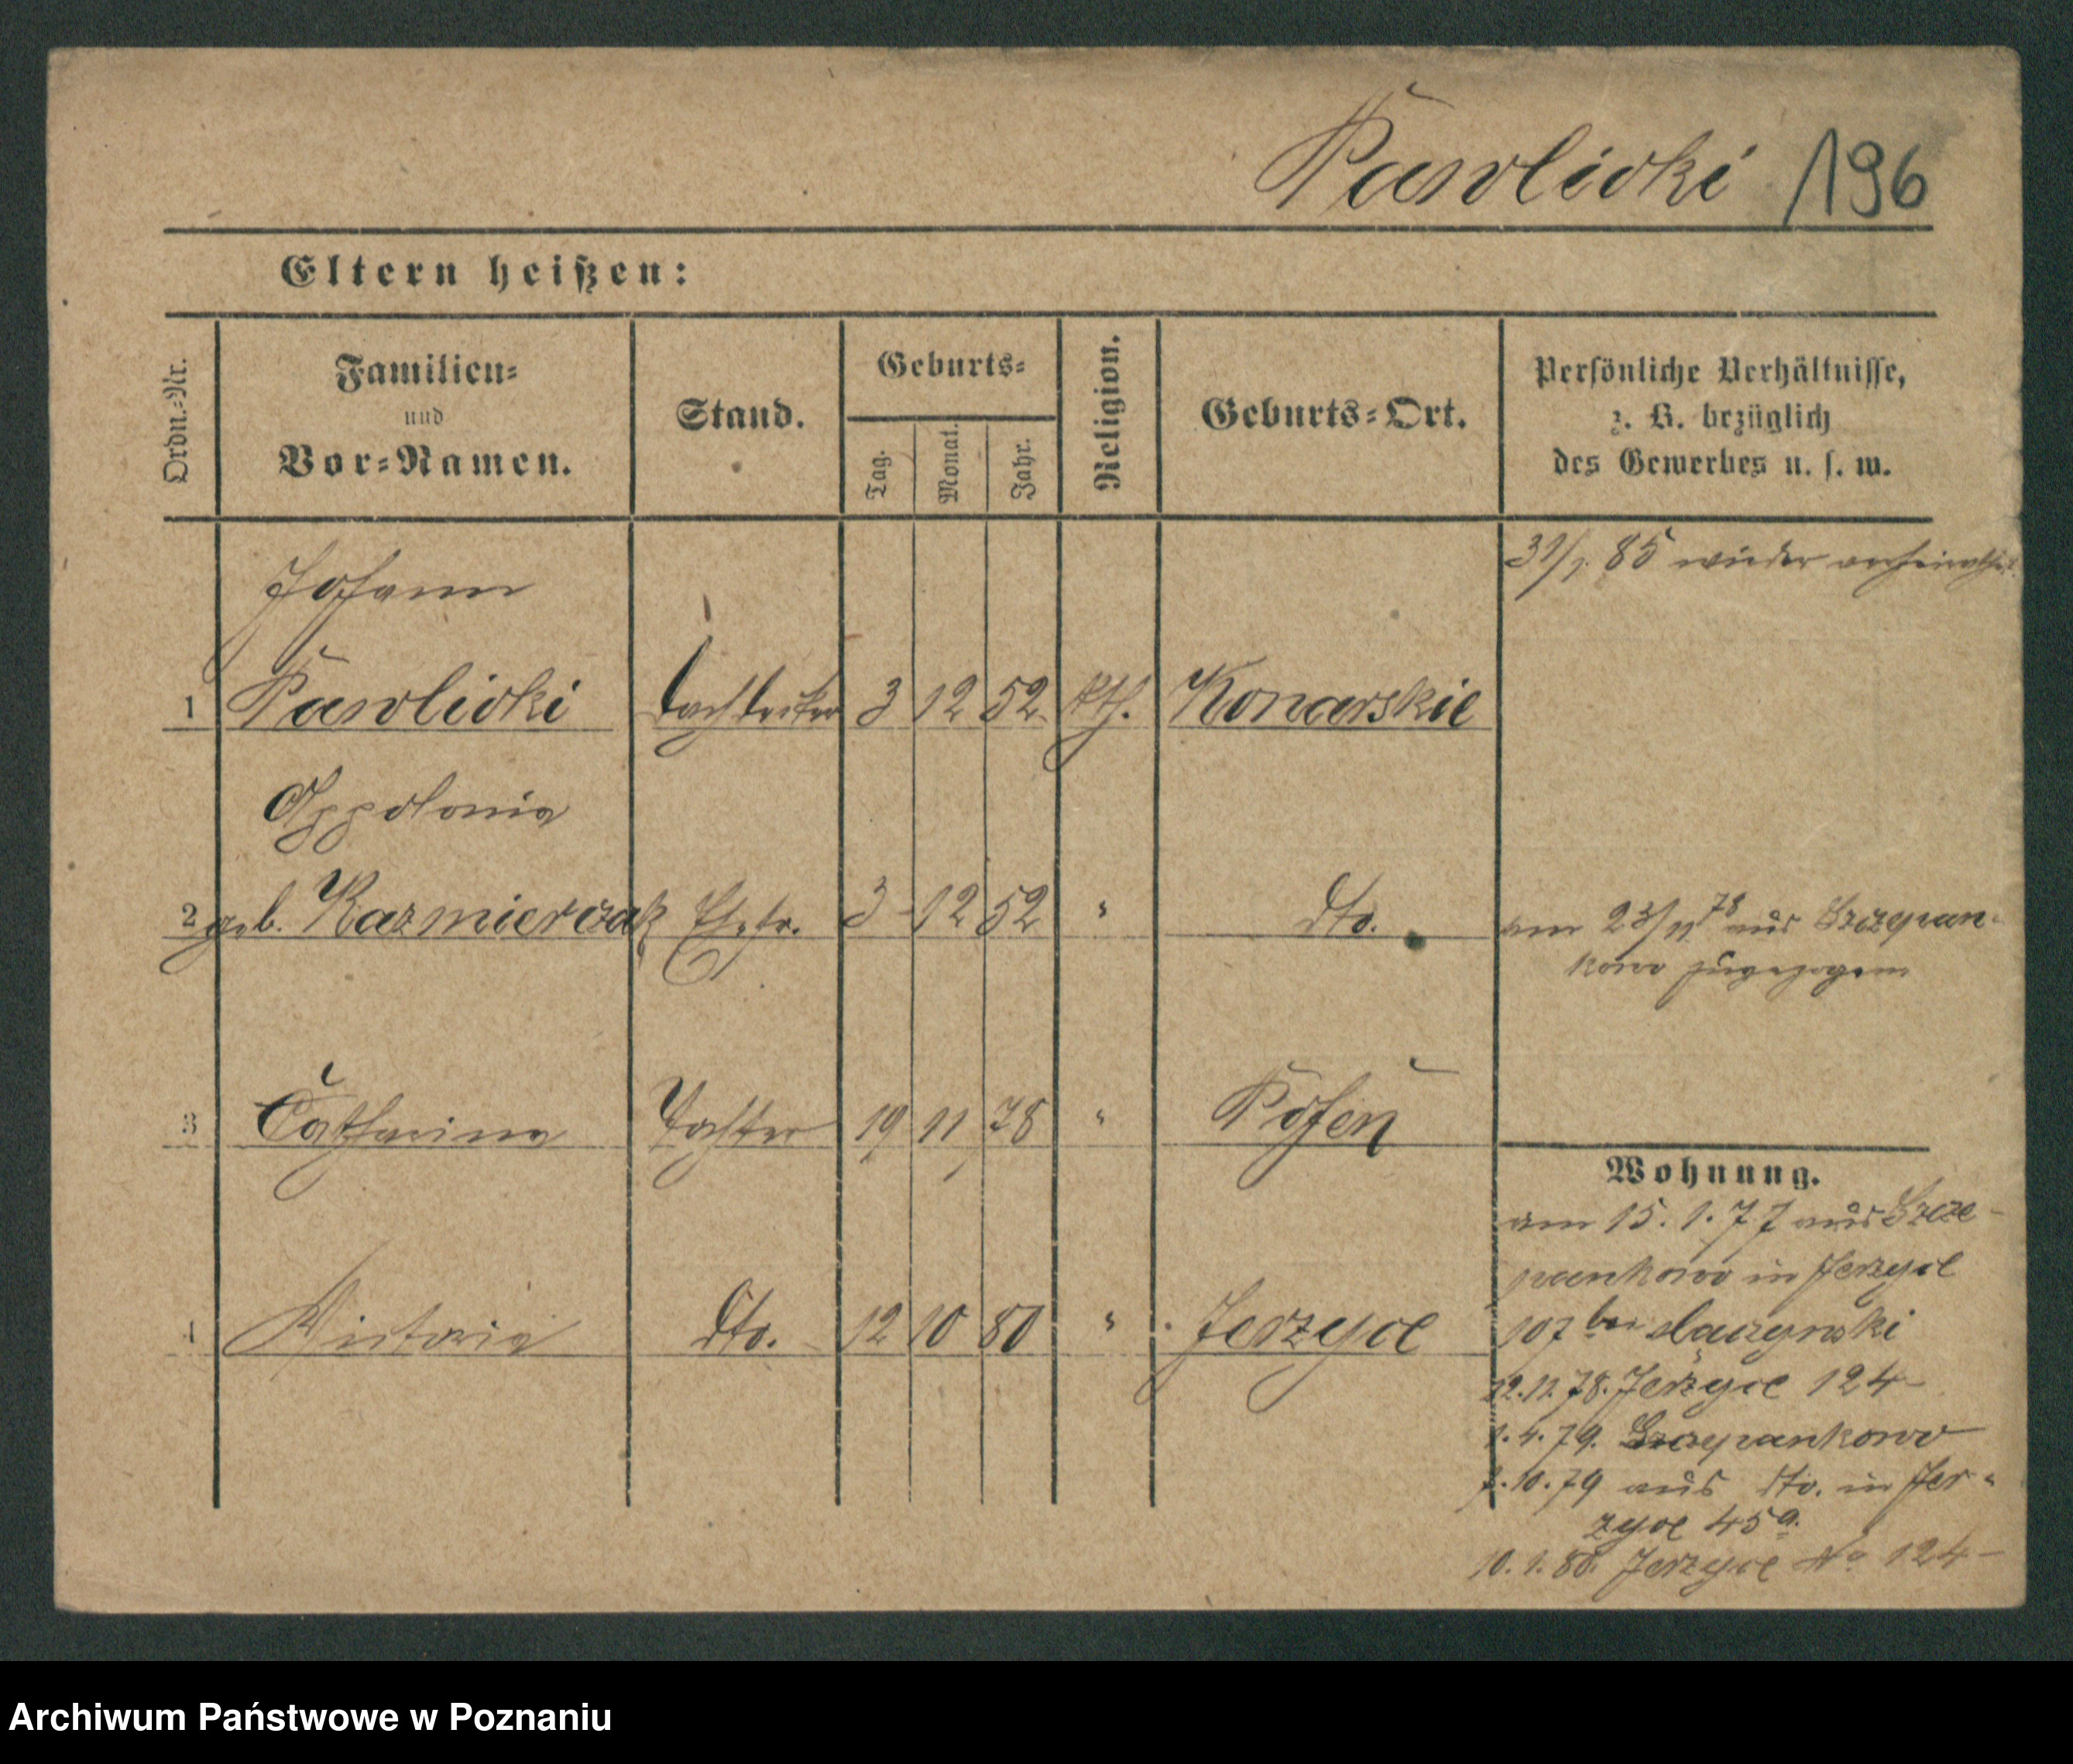 Pawlicki 196
Eltern heißen:
Ordn.-Nr.
Familien-
und
Vor-Namen.
Stand.
Geburts-
Tag.
Monat.
Jahr.
Religion.
Geburts-Ort.
Persönliche Verhältnisse,
z. B. bezüglich
des Gewerbes u. s. w.
31/1. 85 wieder verheirathet
Johann
1 Pawlicki Dachdecker 3 12 52 kth. Konarskie
Appolonia
2 geb. Kazmierczak Ehefr. 3 12 52 " dto. am 23/11 78 aus Szczepan-
kowo zugezogen
3 Catharina Tochter 19 11 78 " Posen
4 Victoria dto. 12 10 80 " Jerzyce
Wohnung.
am 15. 1. 77 aus Szcze-
pankowo in Jerzyce
107 bei
22. 11. 78. Jerzyce 124
1. 4. 79. Szczepankowo
10. 79 aus dto. in Jer-
zyce 45a.
10. 1. 80. Jerzyce No 124
Archiwum Państwowe w Poznaniu